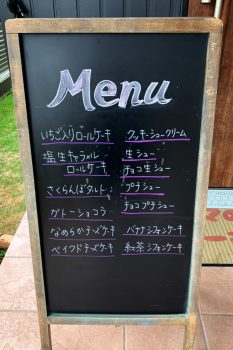 Menu
いちご入りロールケーキ
塩生キャラメル
ロールケーキ
さくらんぼタルト
ガトーショコラ
なめらかチーズケーキ
ベイクドチーズケーキ
クッキーシュークリーム
生シュー
チョコ生シュー
プチシュー
チョコプチシュー
バナナシフォンケーキ
紅茶シフォンケーキ